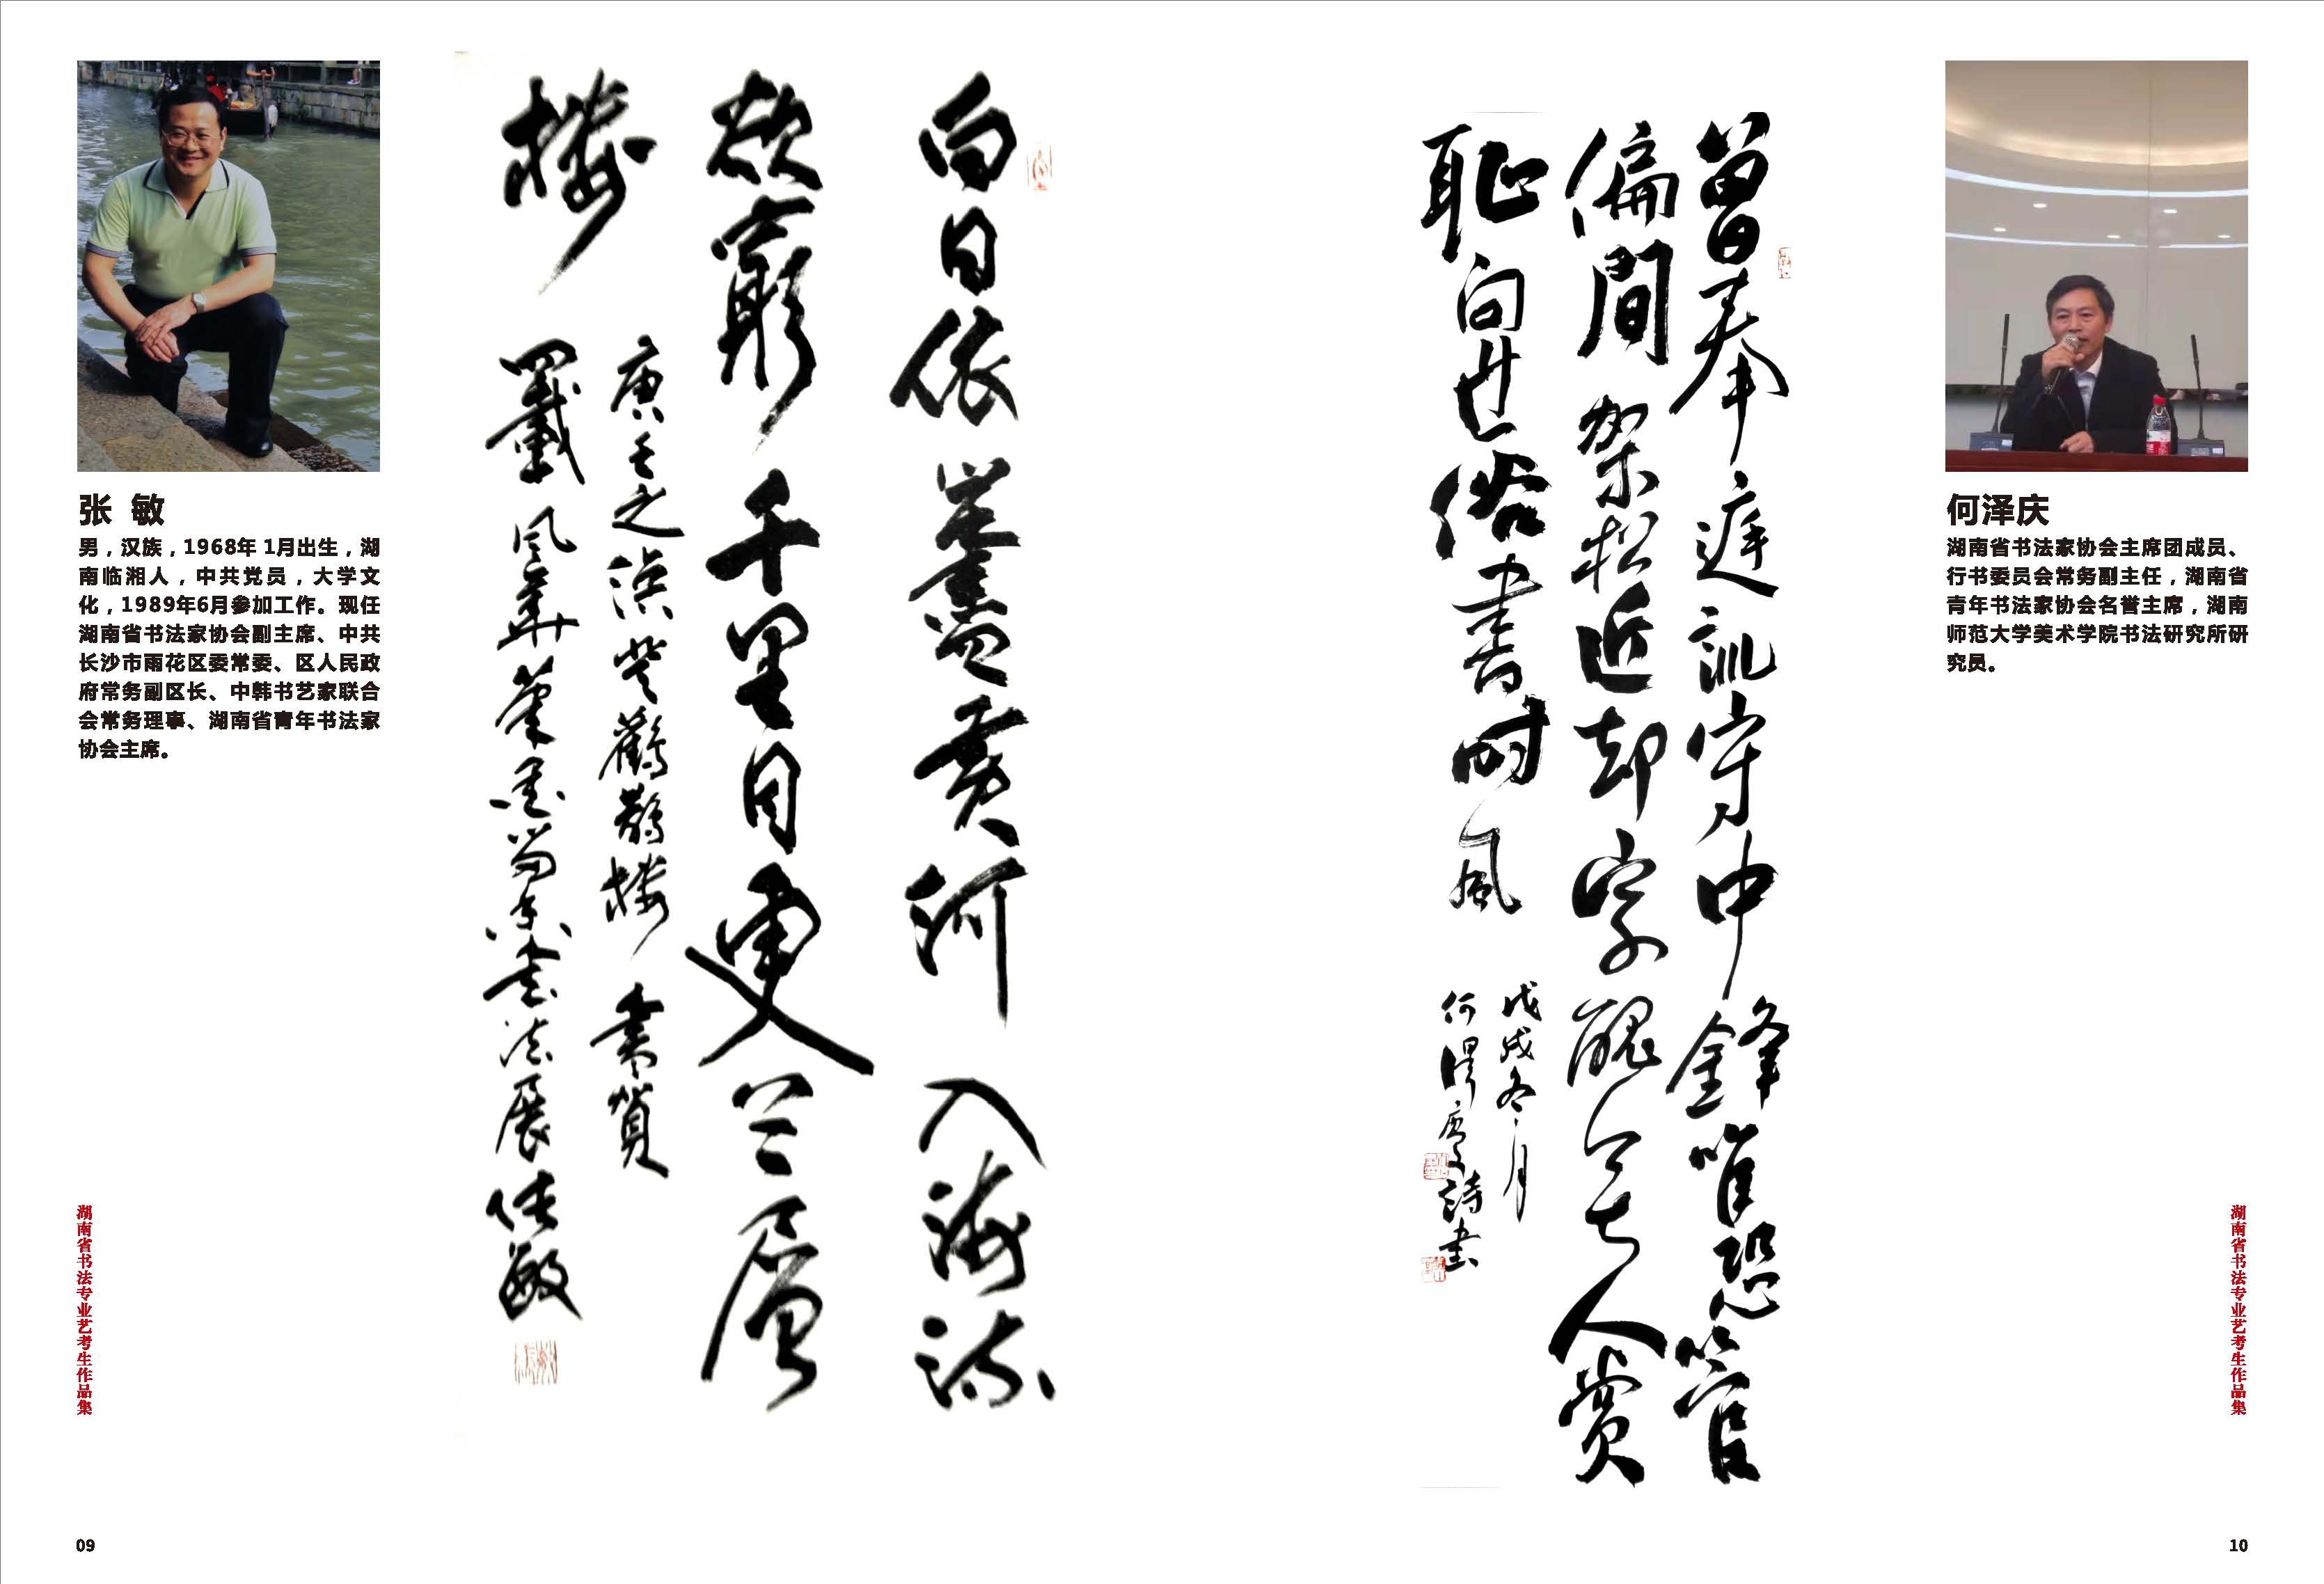 张 敏
男，汉族，1968年 1月出生，湖
南临湘人，中共党员，大学文
化，1989年6月参加工作。现任
湖南省书法家协会副主席、中共
长沙市雨花区委常委、区人民政
府常务副区长、中韩书艺家联合
会常务理事、湖南省青年书法家
协会主席。
白日依山盡黄河入海流
欲窮千里目更上一層
樓
登鸛鵲樓 書賀
風華筆墨 書法展 張敏
湖南省书法专业艺考生作品集
09
曾奉庭訓守中鋒唯恐管
偏間架松近却字醜無人賞
恥向世俗書时風
戊戌冬月
何澤慶詩書
何泽庆
湖南省书法家协会主席团成员、
行书委员会常务副主任，湖南省
青年书法家协会名誉主席，湖南
师范大学美术学院书法研究所研
究员。
湖南省书法专业艺考生作品集
10